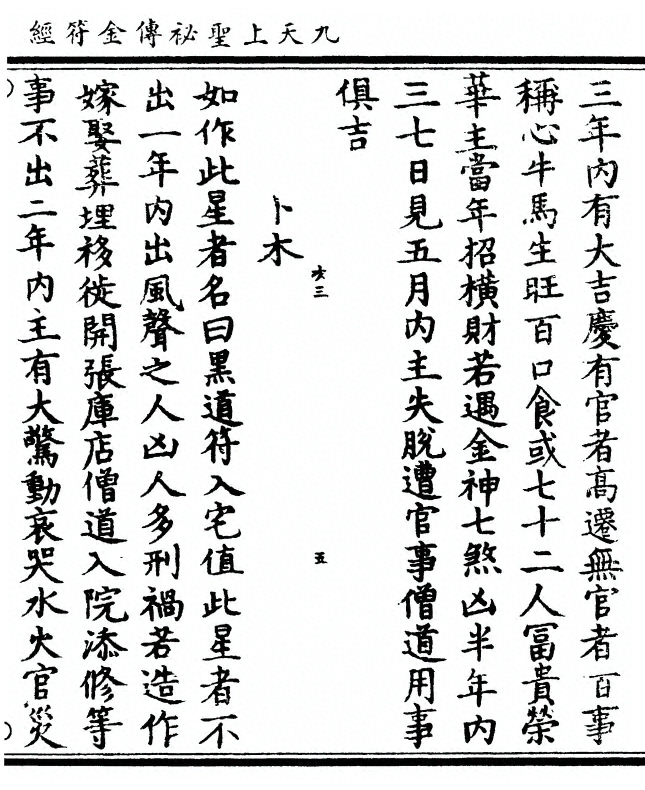 九天上聖祕傳金符經
三年內有大吉慶有官者高遷無官者百事
稱心牛馬生旺百口食或七十二人冨貴榮
華主當年招橫財若遇金神七煞凶半年內
三七日見五月內主失脫遭官事僧道用事
俱吉
亥三
五
卜木
如作此星者名曰黑道符入宅值此星者不
出一年內出風聲之人凶人多刑禍若造作
嫁娶葬埋移徙開張庫店僧道入院添修等
事不出二年內主有大驚動哀哭水火官災